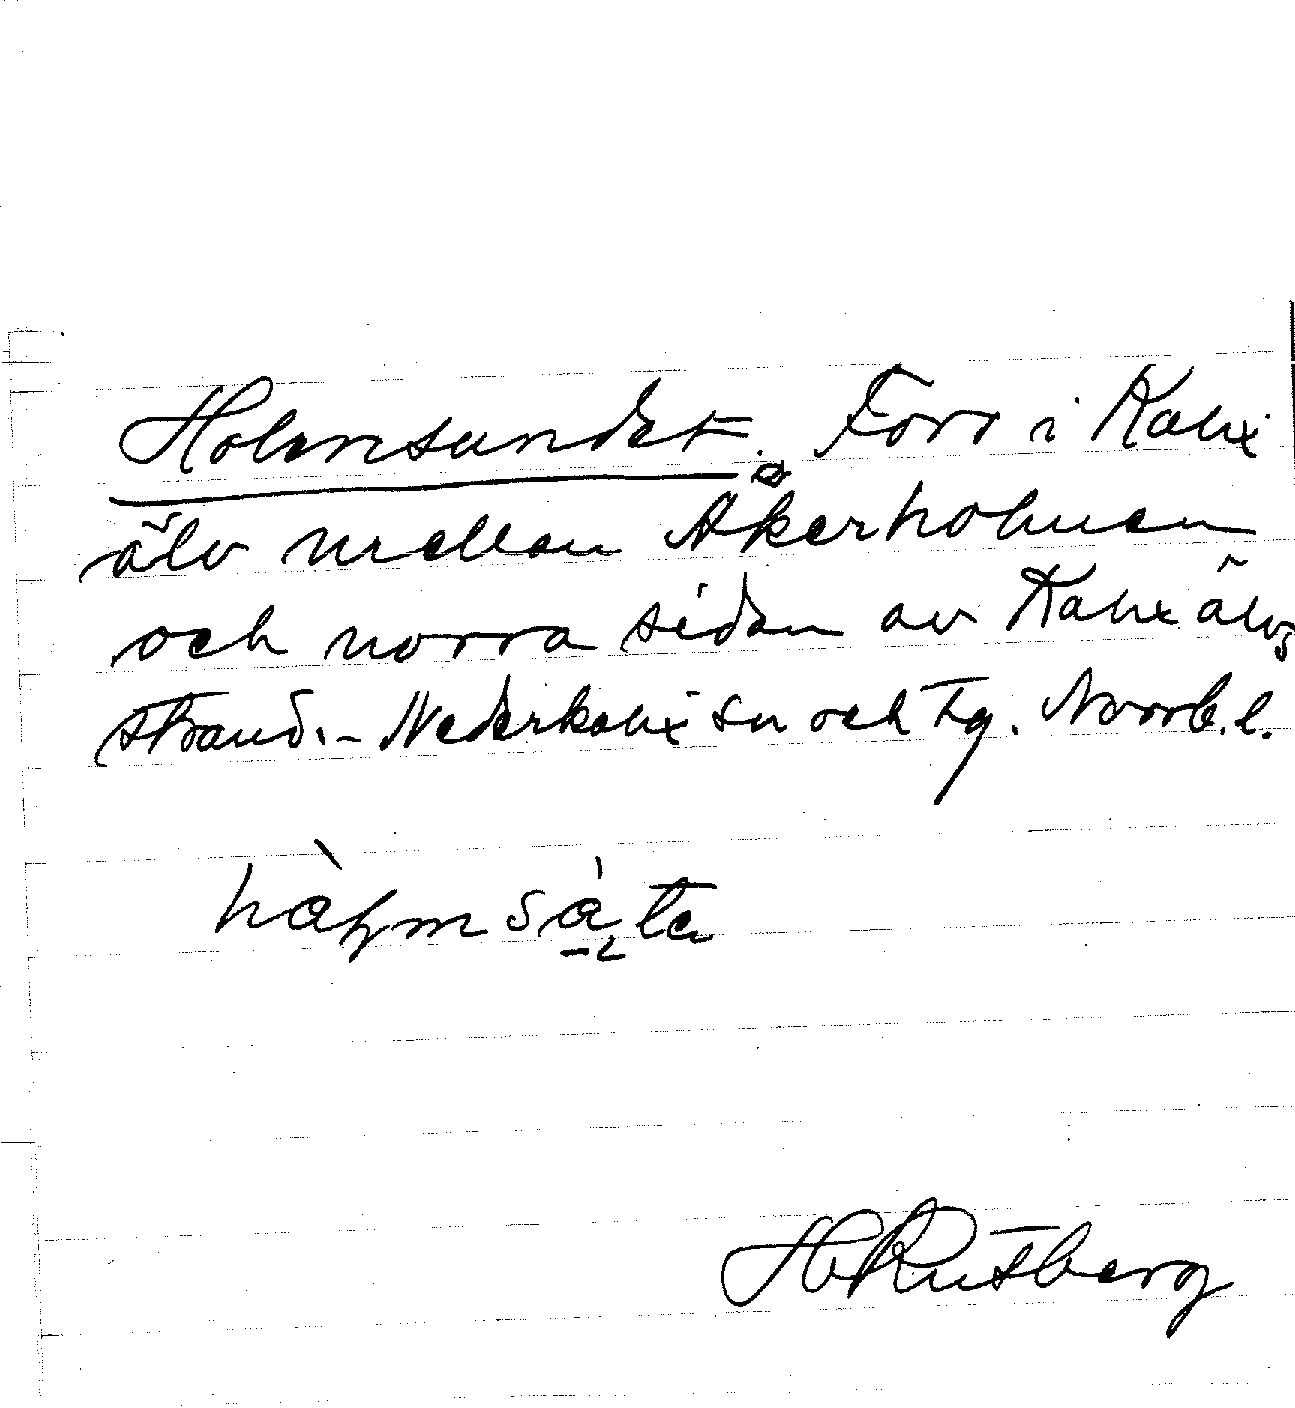 Holmsundet. Fors i Kalix
älv mellan Åkerholmen
och norra sidan av Kalix älvs
strand. - Nederkalix sn och tg. Norrb. l.
hòḷmsá̱ta
H Rutberg